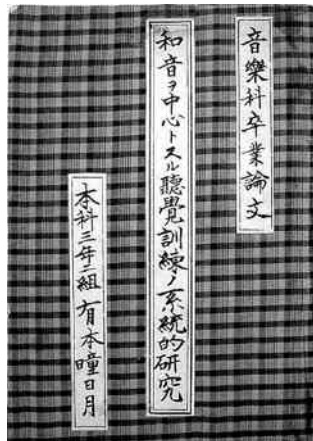 音樂科卒業論文
和音ヲ中心トスル聽覺訓練ノ系統的研究
本科三年二組 有本瞳日月